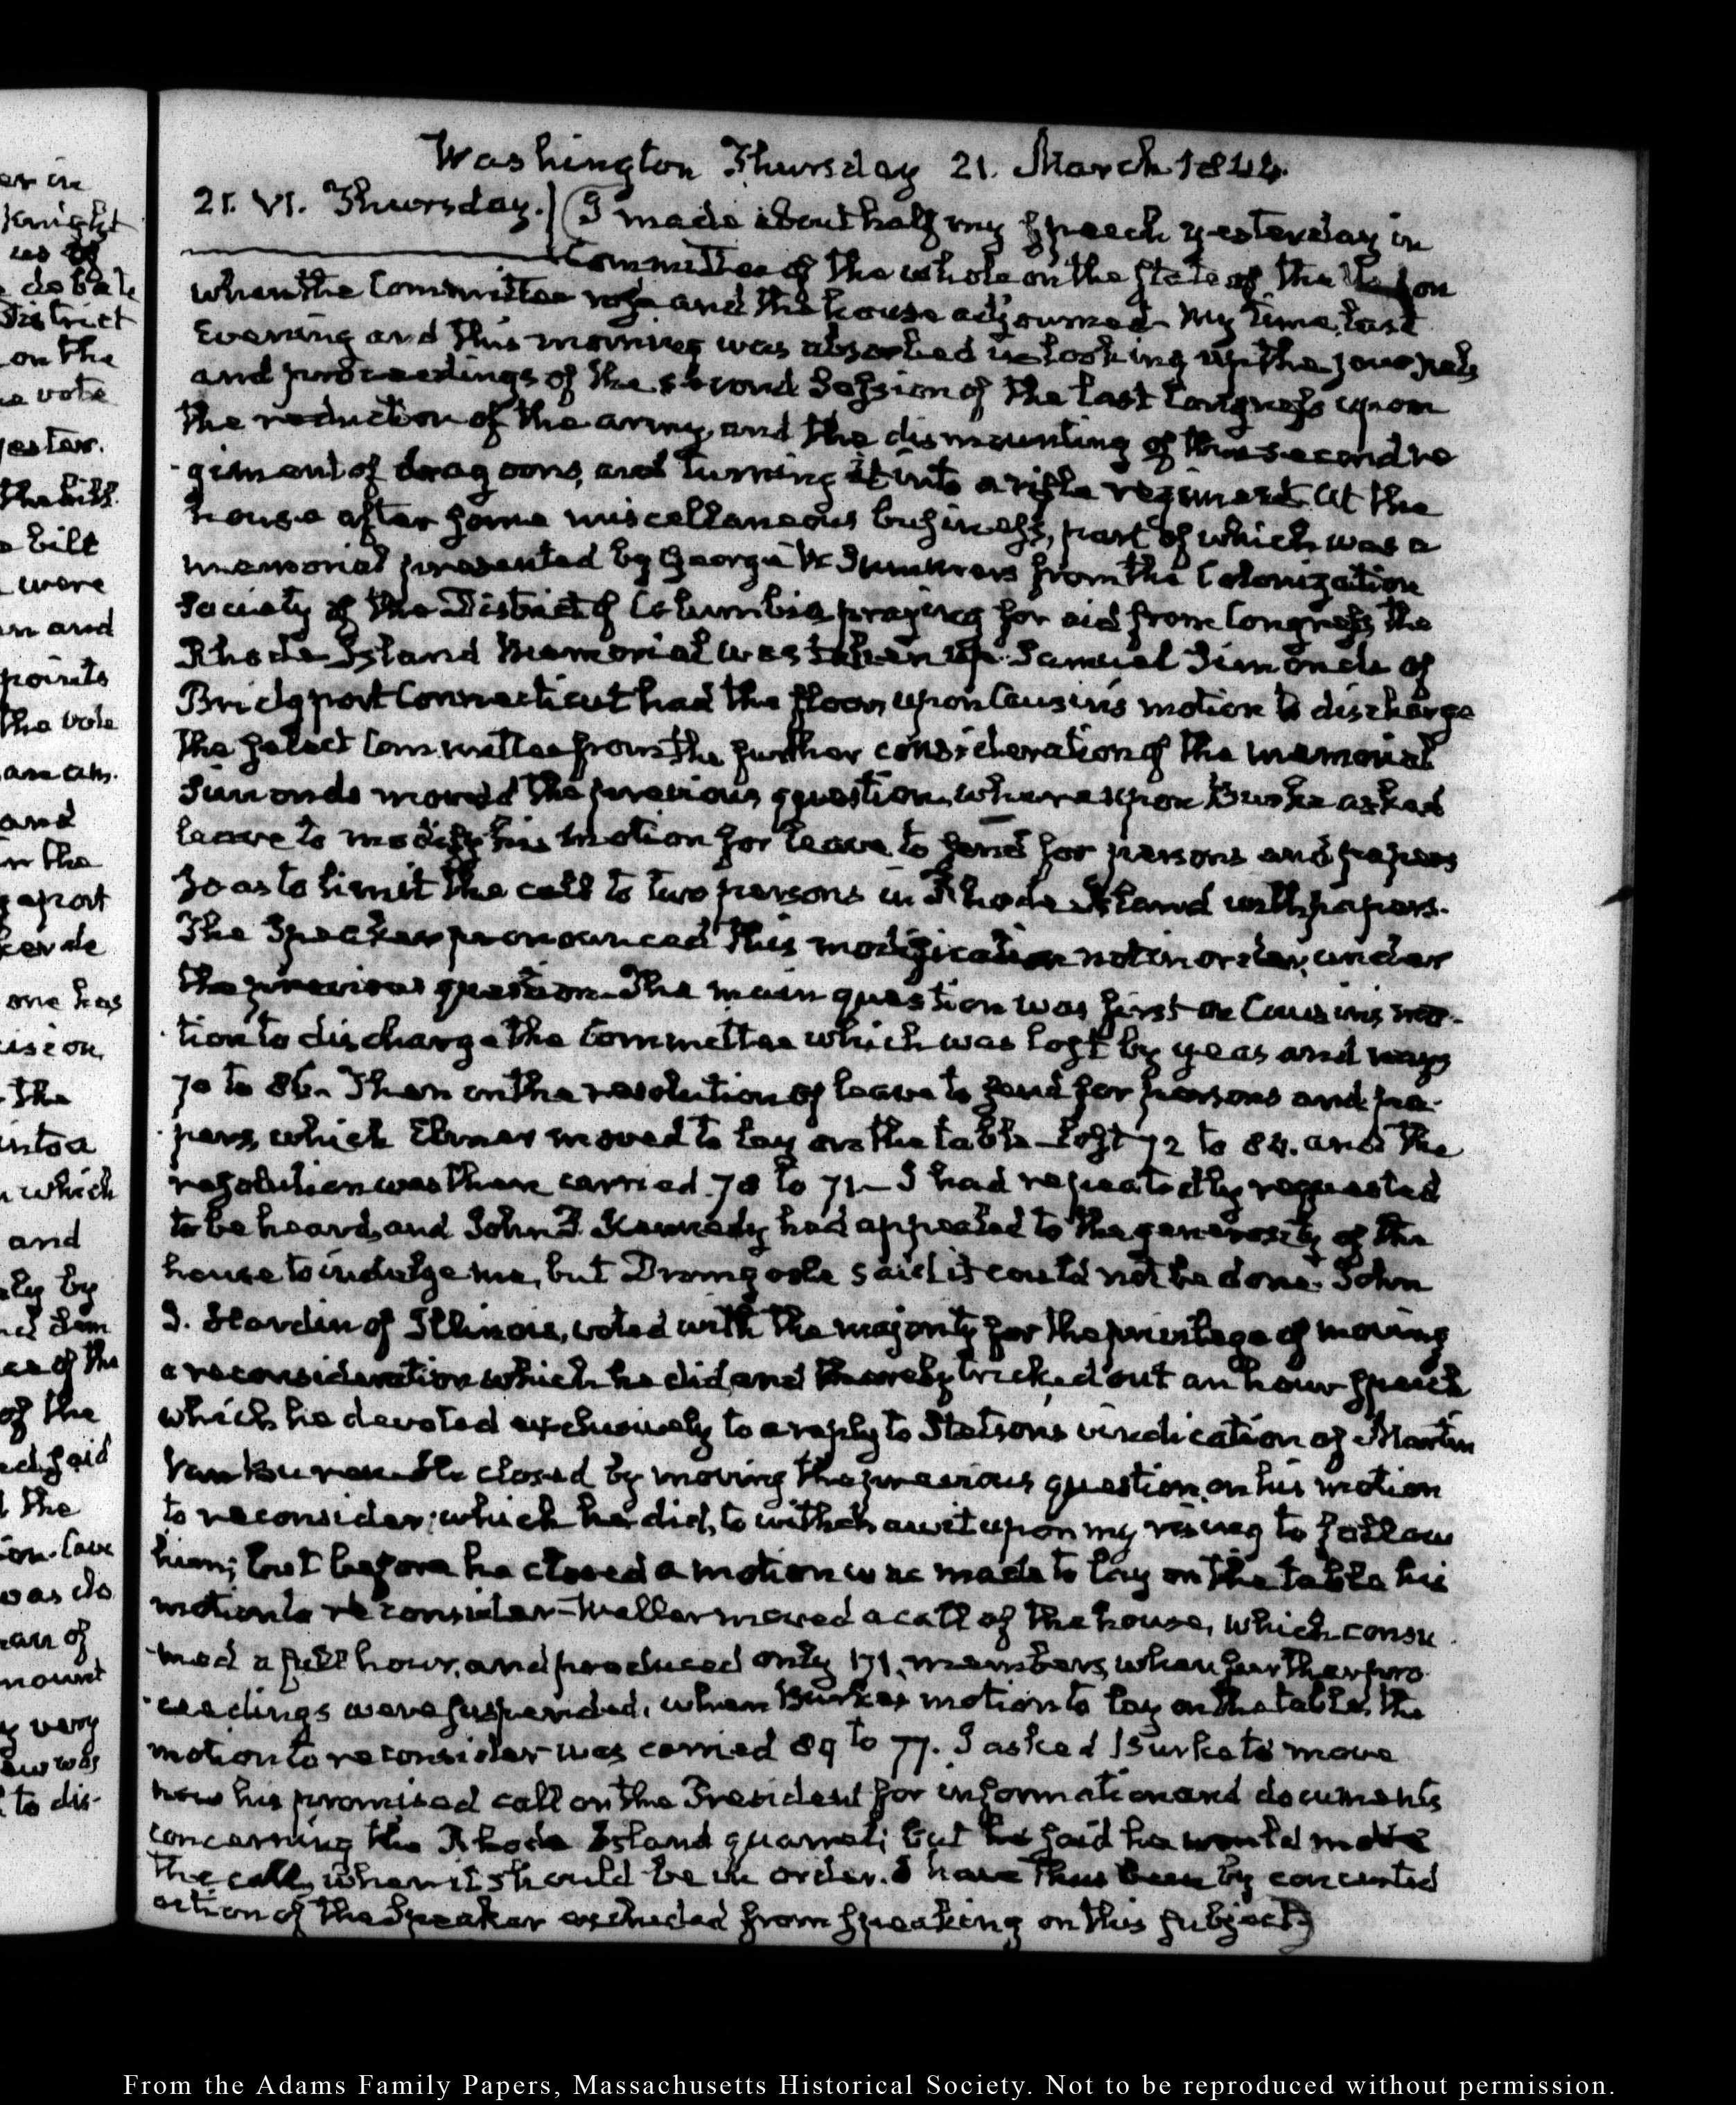 Washington Thursday 21. March 1844.
21. VI. Thursday. I made about half my Speech yesterday in
Committee of the whole on the State of the Union
when the Committee rose and the house adjourned. My time last
Evening and this morning was absorbed in looking up the journals
and proceedings of the second Session of the last Congress upon
the reduction of the army, and the dismounting of the second re
-giment of dragoons, and turning it into a rifle regiment. At the
house after some miscellaneous business, part of which was a
memorial presented by George W Summers from the Colonization
Society of the District of Columbia praying for aid from Congress the
Rhode Island Memorial was taken up. Samuel Simonds of
Bridgport Connecticut had the floor, upon Causin's motion to discharge
the select Committee from the further consideration of the memorial
Simonds moved the previous question, whereupon Burke asked
leave to modify his motion for leave to send for persons and papers
so as to limit the call to two persons in Rhode Island with papers.
The Speaker pronounced this modification not in order, under
the previous question. The main question was first on Causins mo-
-tion to discharge the Committee which was lost by yeas and nays
70 to 86. Then on the resolution of leave to send for persons and pa-
-pers, which Elmer moved to lay on the table lost 72 to 84. and the
resolution was then carried 78 to 71— I had repeatedly requested
to be heard, and John P. Kennedy had appealed to the generosity of the
house to indulge me, but Dromgoole said it could not be done. John
J. Hardin of Illinois, voted with the majority for the privilege of moving
a reconsideration which he did, and thereby tricked out an hour speech
which he devoted exclusively to a reply to Stetsons vindication of Martin
Van Buren. He closed by moving the previous question, on his motion
to reconsider; which he did, to withdraw it upon my rising to follow
him; but before he closed a motion was made to lay on the table his
motion to reconsider— Weller moved a call of the house, which consu
-med a full hour, and produced only 171. members, when further pro
-ceedings were suspended, when Burkes motion to lay on the table, the
motion to reconsider was carried 89 to 77. I asked Burke to move
now his promised call on the President for information and documents
concerning the Rhode Island quarrel; but he said he would move
the call, when it should be in order. I have thus been by concerted
action of the Speaker excluded from speaking on this subject
er in
Knight
debate
District
on the
vote
the bill
bill
were
and
points
the vote
and
the
one has
the
into a
which
and
by
of the
of the
said
the
was do
of
mount
very
was
to dis-
From the Adams Family Papers, Massachusetts Historical Society. Not to be reproduced without permission.